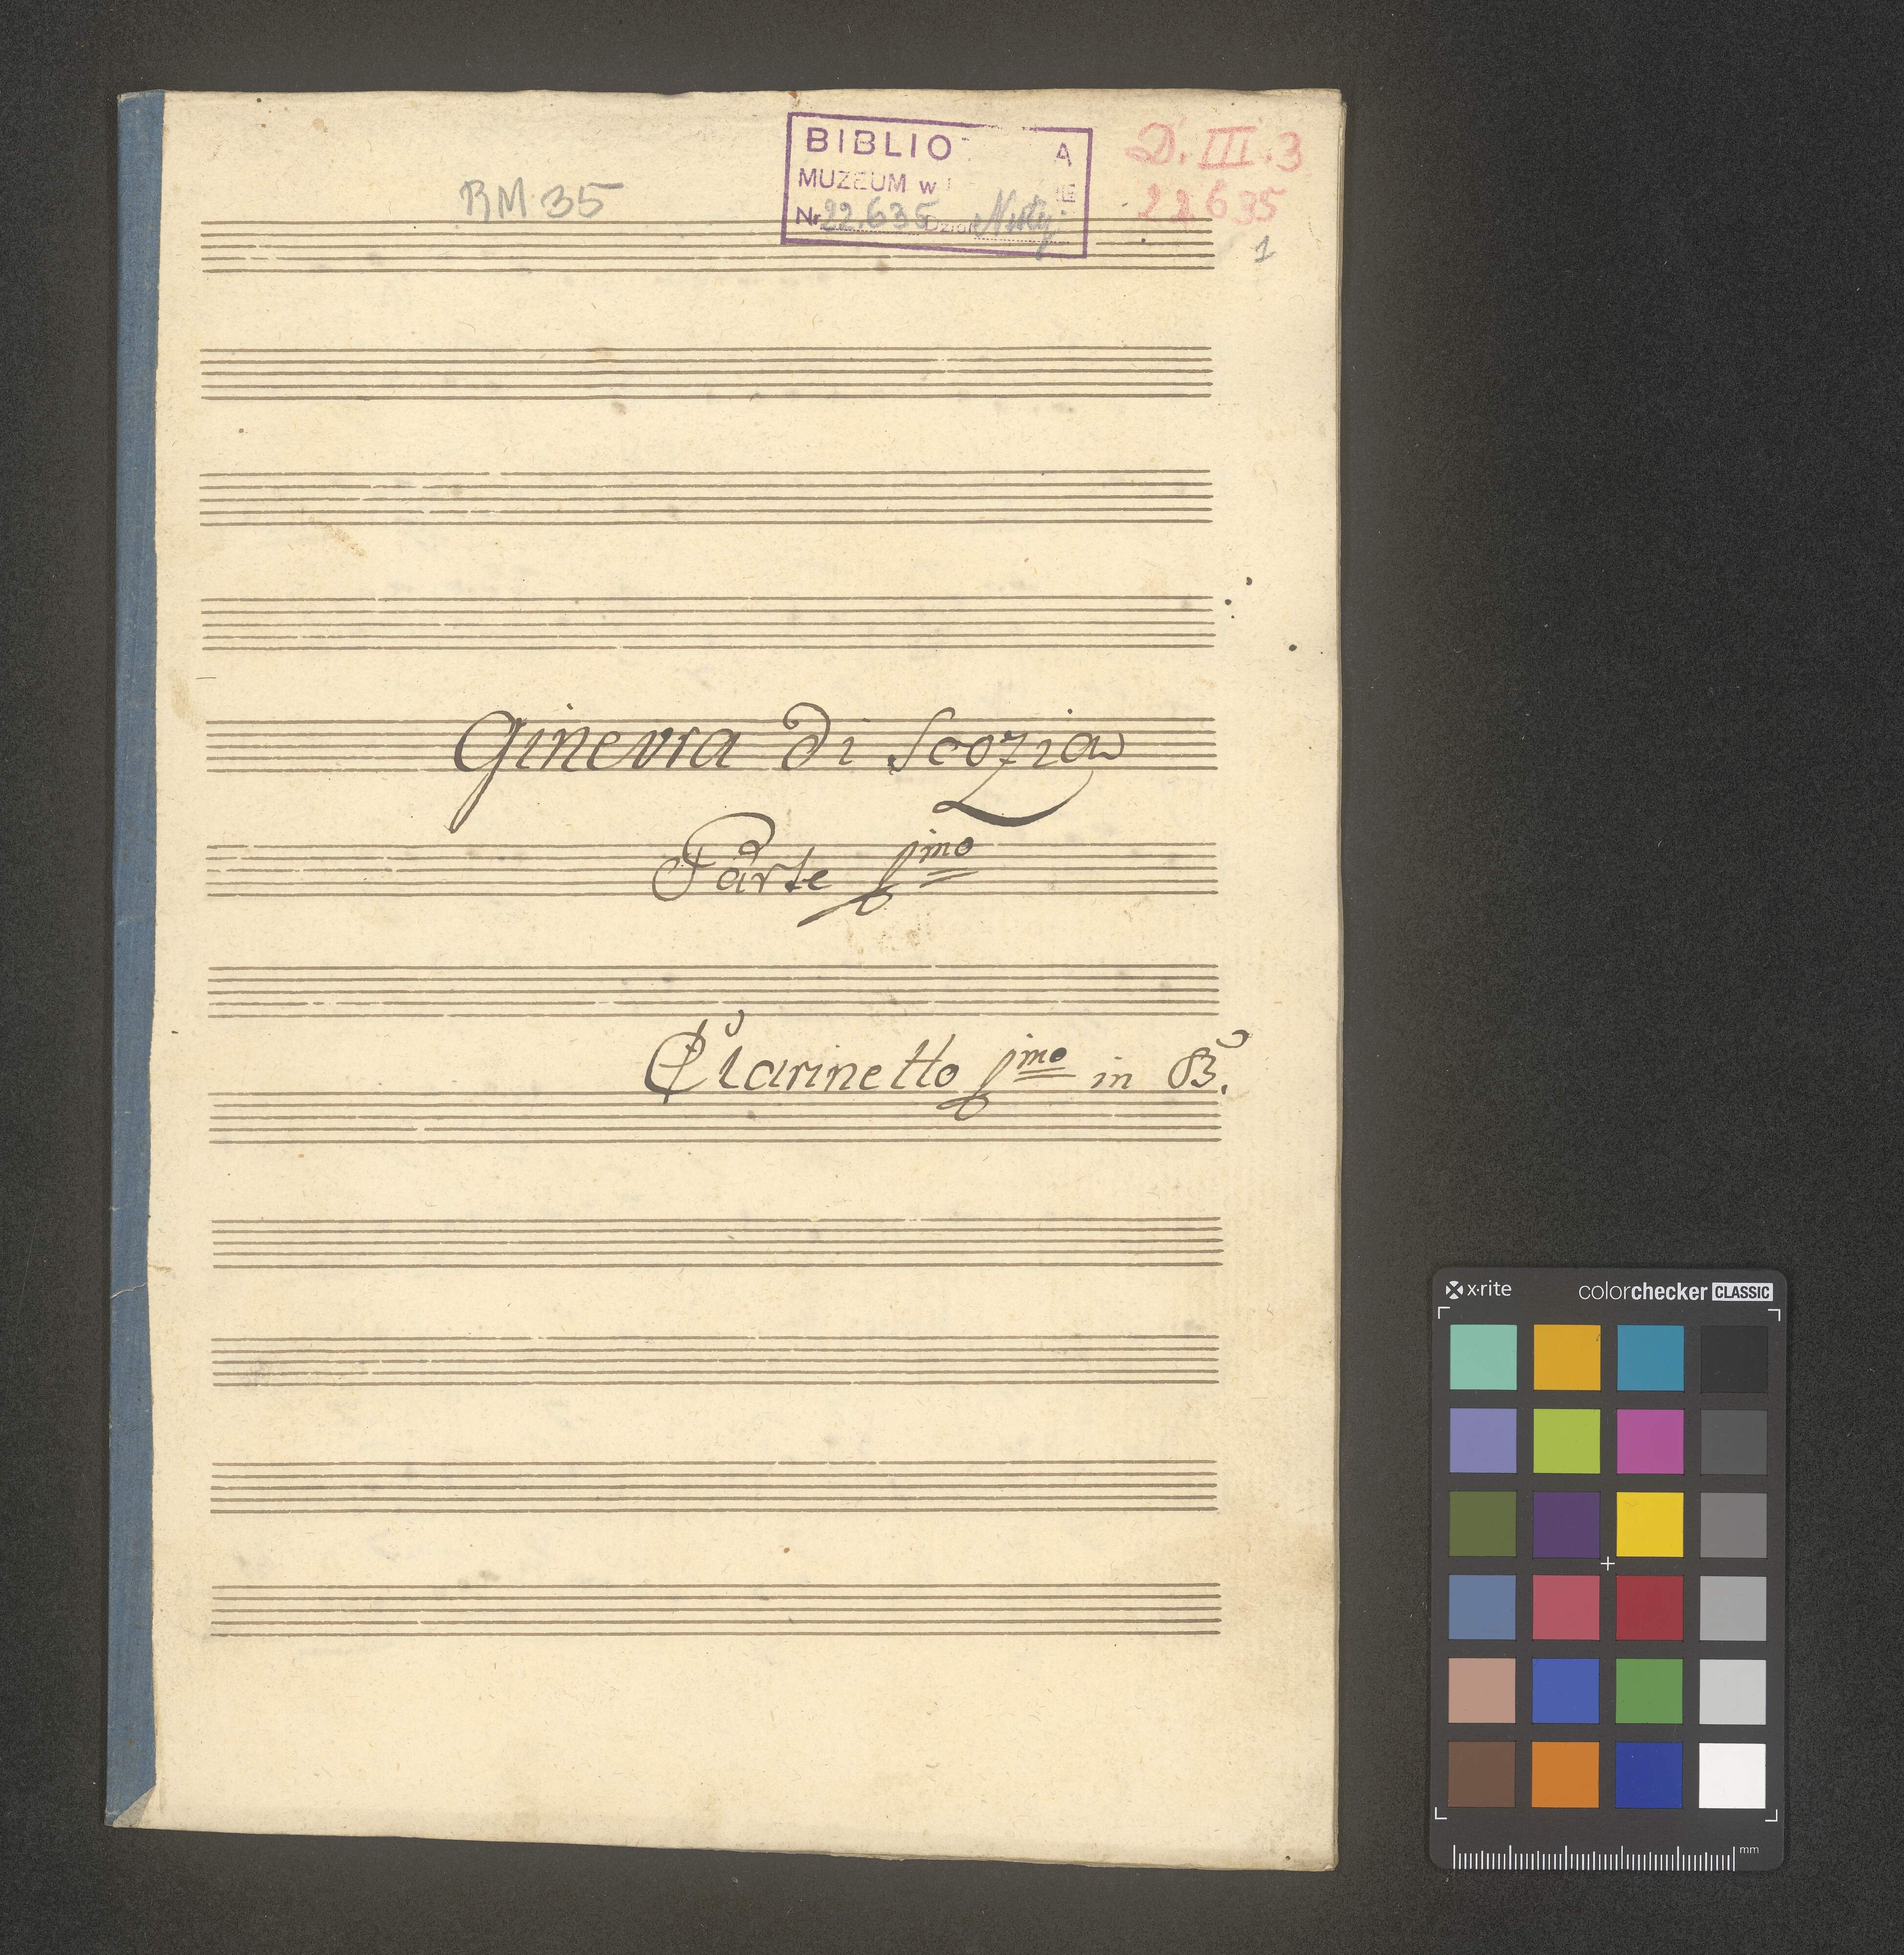 BIBLIO A
MUZEUM w
Nr 22.635 Dział Nuty.
RM 35
D. III. 3
22635
1
Ginevra di Scozia
Parte Imo
Clarinetto Imo in B.
x·rite colorchecker CLASSIC
mm